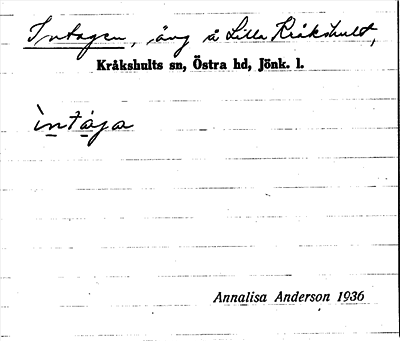 Intagen, äng å Lilla Kråkshult,
Kråkshults sn, Östra hd, Jönk. l.
ìntága
Annalisa Anderson 1936